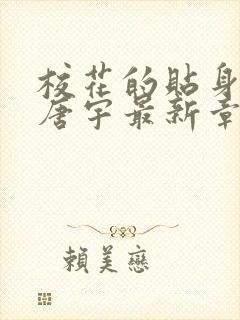 校花的貼身
唐宇最新章
賴美戀